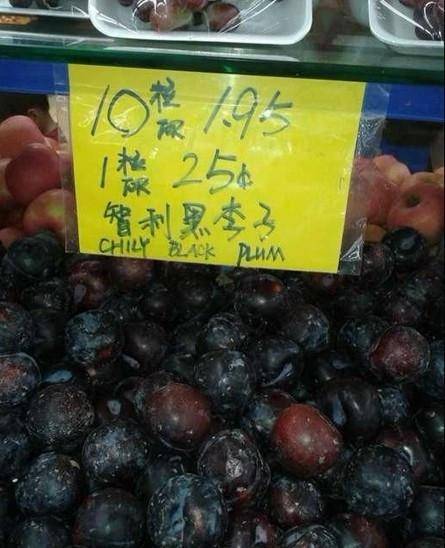 10 粒 FOR 1.95
1 粒 FOR 25¢
智利黑李子
CHILY BLACK PLUM